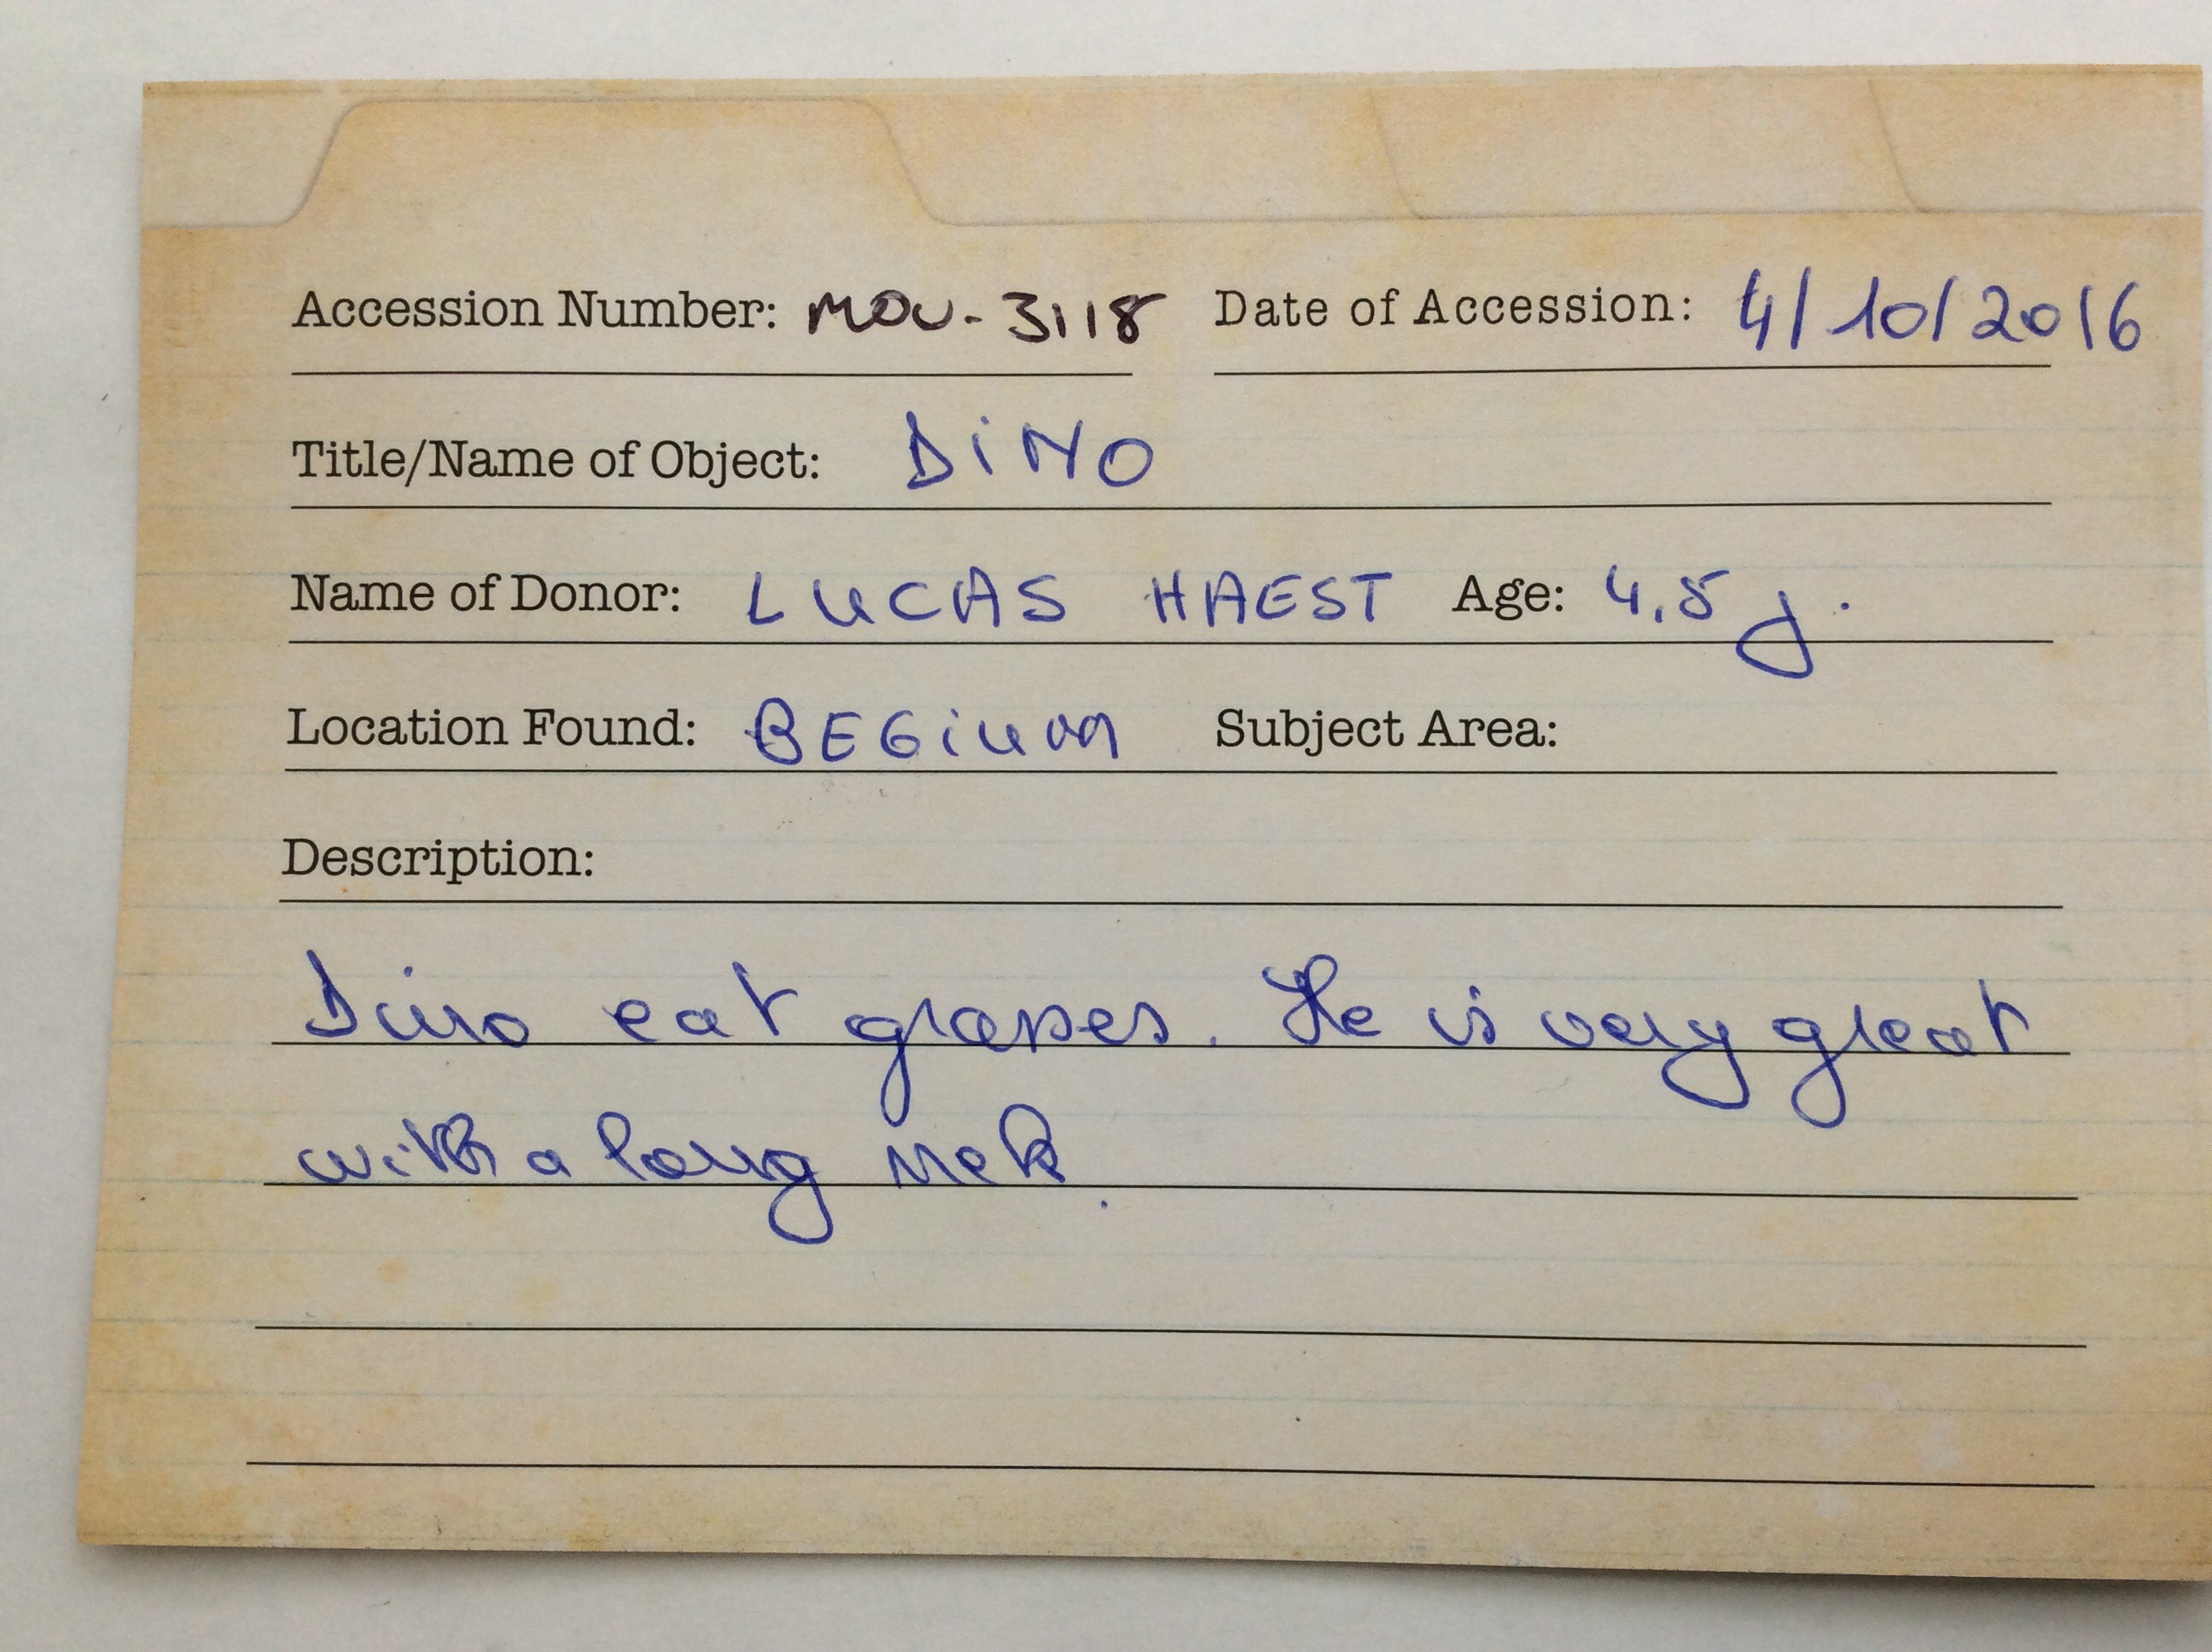 Accession Number: MOU-3118 Date of Accession: 4/10/2016
Title/Name of Object: DiNO
Name of Donor: LUCAS HAEST Age: 4,5 j.
Location Found: BEGiuM Subject Area:
Description:
Dino eat grasses. He is very great
with a long nek.